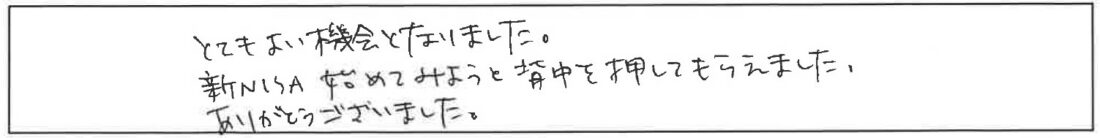 とてもよい機会となりました。
新NISA 始めてみようと背中を押してもらえました、
ありがとうございました。